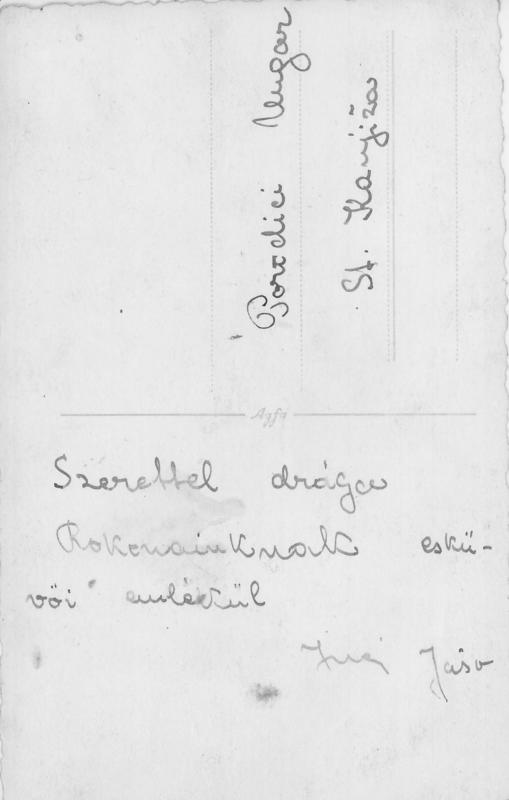 Porodici Ungar
St. Kanjiža
Agfa
Szerettel drága
Rokonainknak eskü-
vöi emlékül
Jašo